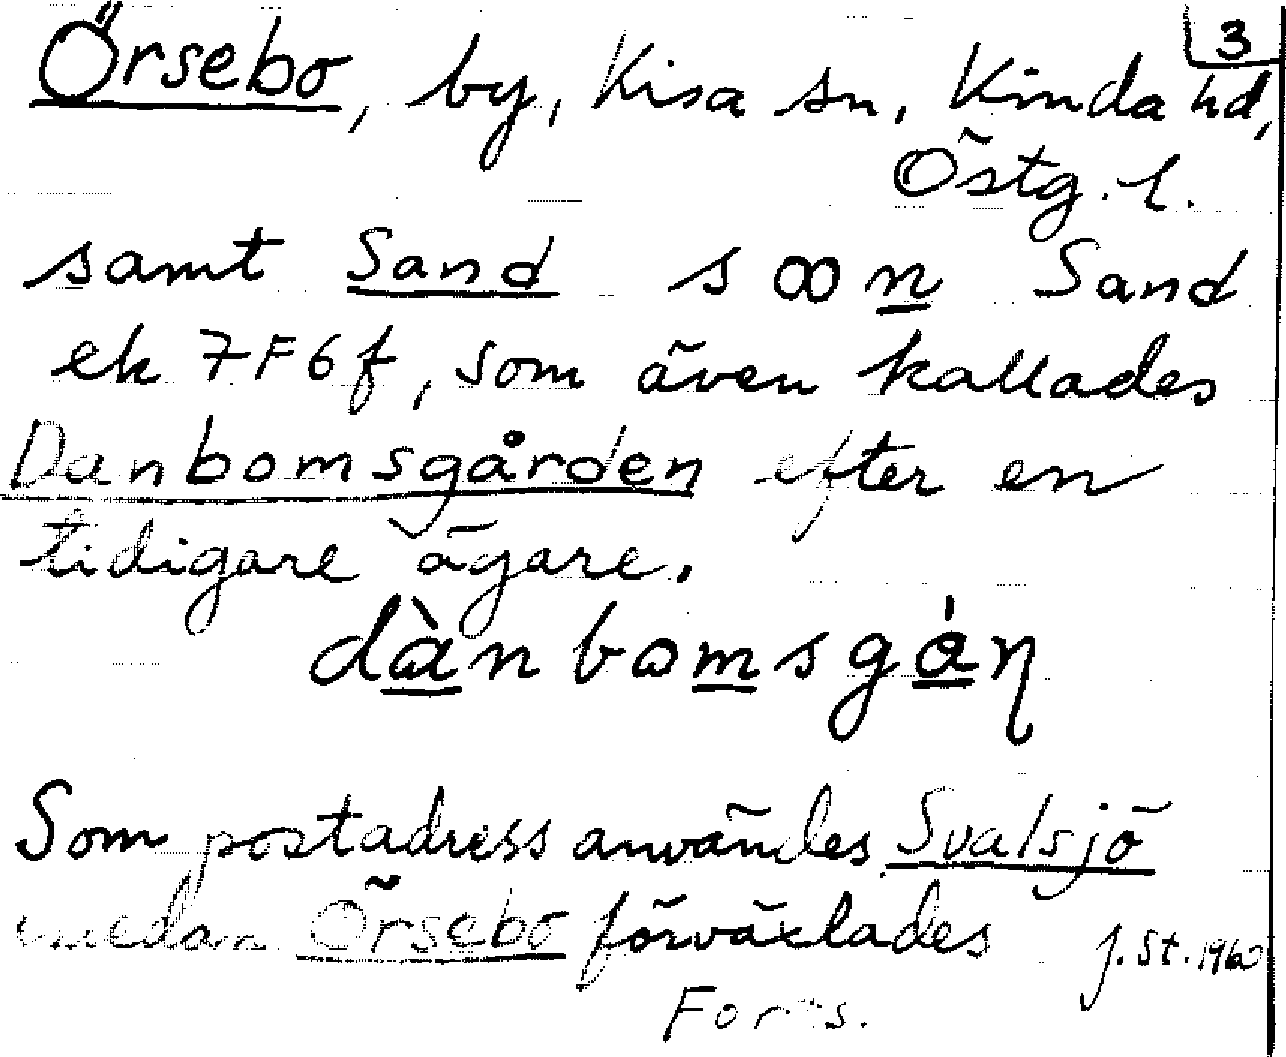 3
Örsebo, by, Kisa sn, Kinda hd,
Östg. l.
samt Sand s ꝏ n Sand
ek 7F6f, som även kallades
Danbomsgården efter en
tidigare ägare.
dànbomsgȧ́ɳ
Som postadress användes Svalsjö
medan Örsebo förväxlades
J. St. 1960